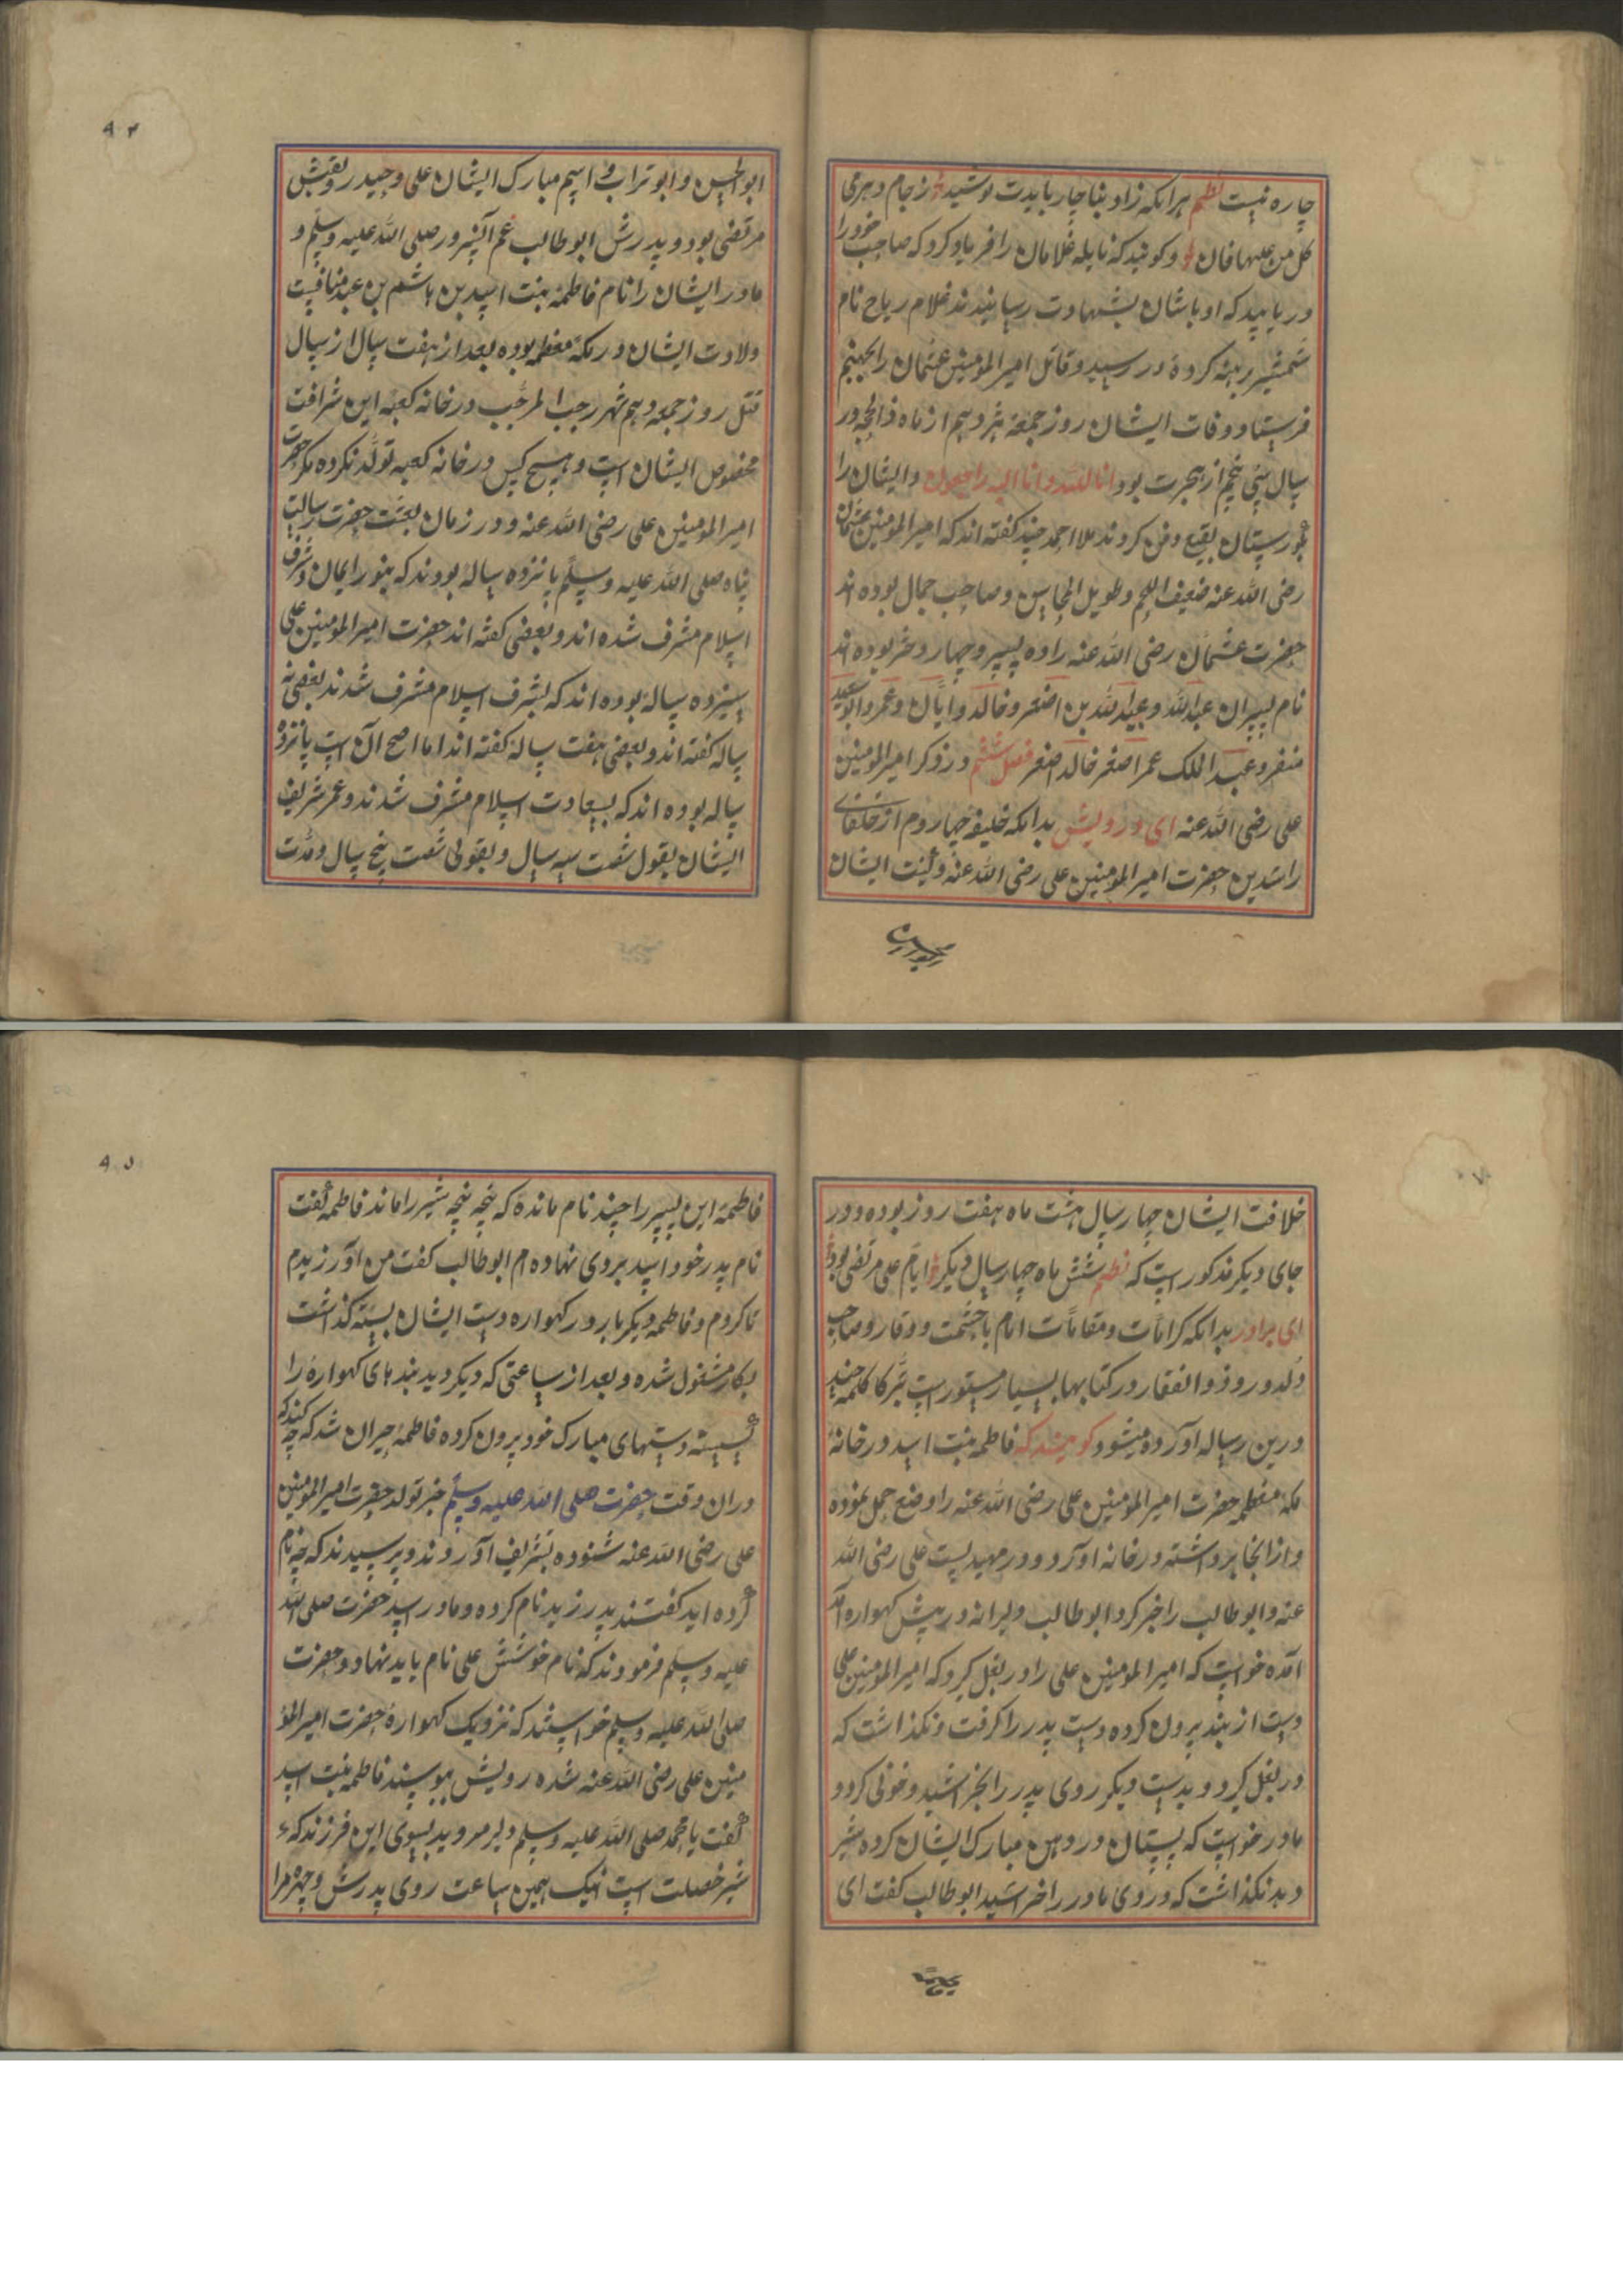 چاره نیست نظم هرانکه زاد بناچار بایدت نوشید ز جام دهر می
کل من علیها فان و کویند که نایله غلامان را فریاد کرد که صاحب خود را
دریابید که اوباشان بشهادت رسانیدند غلام ریاح نام
شمشیر برهنه کرده در رسید و قاتل امیر المومنین عثمان را بجهنم
فرستاد و فات ایشان روز جمعه هژدهم از ماه ذالحجه در
سال سی پنجم از هجرت بود انا لله و انا الیه راجعون و ایشان را
بکورستان بقیع دفن کردند ملا احمد جند کفته اند که امیر المومنین عثمان
رضی الله عنه ضعیف اللحم و طویل المحاسن و صاحب جمال بوده اند
حضرت عثمان رضی الله عنه را ده پسر و چهار دختر بوده اند
نام پسران عبد الله و عبید الله بن اصغر و خالد و ابان و عمر و ابو سعید
منفر و عبد الملک عمر اصغر خالد اصغر فصل ششم در ذکر امیر المومنین
علی رضی الله عنه ای درویش بدانکه خلیفه چهاروم از خلفای
راشدین حضرت امیر المومنین علی رضی الله عنه و کنیت ایشان
ابو الحسن و ابو تراب و اسم مبارک ایشان علی و حیدر و لقبش
مرتضی بود و پدرش ابو طالب عم آنسرور صلی الله علیه وسلم و
مادر ایشان را نام فاطمه بنت اسد بن هاشم بن عبد منافست
ولادت ایشان در مکه معظمه بوده بعد از هفت سال از سال
قتل روز جمعه دهم شهر رجب المرجب در خانه کعبه این شرافت
مخصوص ایشان است و هیچ کس در خانه کعبه تولد نکرده مکر حضرت
امیر المومنین علی رضی الله عنه و در زمان بعثت حضرت رسالت
پناه صلی الله علیه وسلم پانزده ساله بودند که بنور ایمان و شرف
اسلام مشرف شده اند و بعضی کفته اند حضرت امیر المومنین علی
سیزده ساله بوده اند که بشرف اسلام مشرف شدند بعضی نه
ساله کفته اند و بعضی هفت ساله کفته اند اما اصح آن است پانزده
ساله بوده اند که بسعادت اسلام مشرف شدند و عمر شریف
ایشان بقول شصت سه سال و بقولی شصت پنج سال و مدت
خلافت ایشان چهار سال هشت ماه هفت روز بوده و در
جای دیکر مذکور است که نظم شش ماه چهار سال دیکر ایام علی مرتضی بود
ای برادر بدانکه کرامات و مقامات امام با حشمت و وقار و صاحب
دلدل و ذوالفقار در کتابها بسیار مستور است تبرکا کلمه چند
درین رساله آورده میشود کویند که فاطمه بنت اسد در خانه
مکه معظمه حضرت امیر المومنین علی رضی الله عنه را وضع حمل نموده
و از انجا برداشته در خانه آورد و در مهد بست علی رضی الله
عنه و ابو طالب را خبر کرد ابو طالب دلیرانه در پیش کهواره
آمده خواست که امیر المومنین علی را در بغل کیرد که امیر المومنین علی
دست از بند برون کرده دست پدر را کرفت و نکذاشت که
در بغل کیرد و بدست دیکر روی پدر را بخراشید و خونی کرد و
مادر خواست که پستان در دهن مبارک ایشان کرده شیر
دهد نکذاشت که و روی مادر را خراشید ابو طالب کفت ای
فاطمه این پسر را چند نام مانده که پنجه پنجه شیر را ماند فاطمه کفت
نام پدر خود اسد بروی نهاده ام ابو طالب کفت من او را زید نام
کردم و فاطمه دیکر بار در کهواره دست ایشان بسته کذاشت
بکار مشغول شده و بعد از ساعتی که دیکر دید بند های کهواره را
کسسته دستهای مبارک خود برون کرده فاطمه حیران شد که چه کند که
دران وقت حضرت صلی الله علیه وسلم خبر تولد حضرت امیر المومنین
علی رضی الله عنه شنوده تشریف آوردند و پرسیدند که چه نام
کرده اید کفتند پدر زید نام کرده و مادر اسد حضرت صلی الله
علیه وسلم فرمودند که نام خوشش علی نام باید نهاد و حضرت
صلی الله علیه وسلم خواستند که نزدیک کهواره حضرت امیر المؤ
منین علی رضی الله عنه شده رویش ببوسند فاطمه بنت اسد
کفت یا محمد صلی الله علیه وسلم دلیر مروید بسوی این فرزند که
شیر خصلت است اینک همین ساعت روی پدرش و چهره مرا